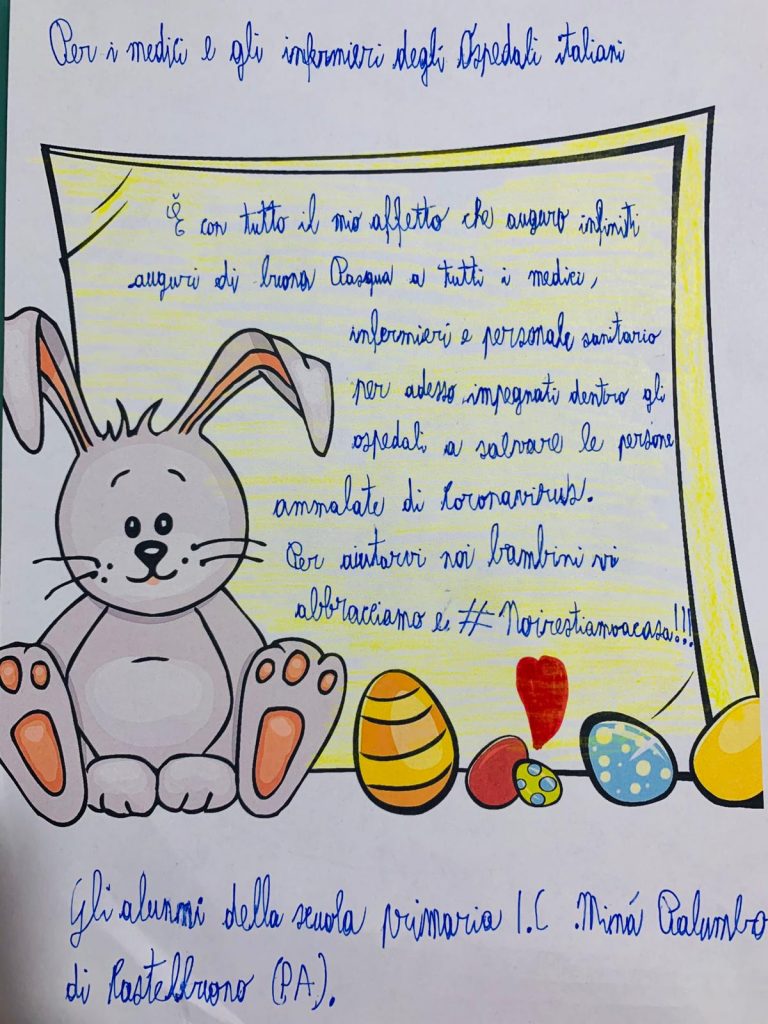 Per i medici e gli infermieri degli Ospedali italiani
È con tutto il mio affetto che auguro infiniti
auguri di buona Pasqua a tutti i medici,
infermieri e personale sanitario
per adesso impegnati dentro gli
ospedali a salvare le persone
ammalate di Coronavirus.
Per aiutarvi noi bambini vi
abbracciamo e # Noirestiamoacasa!!!
Gli alunni della scuola primaria I.C. Miná Palumbo
di Castelbuono (PA).